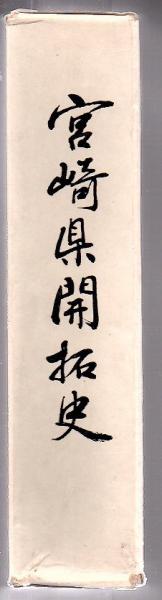 宮崎県開拓史